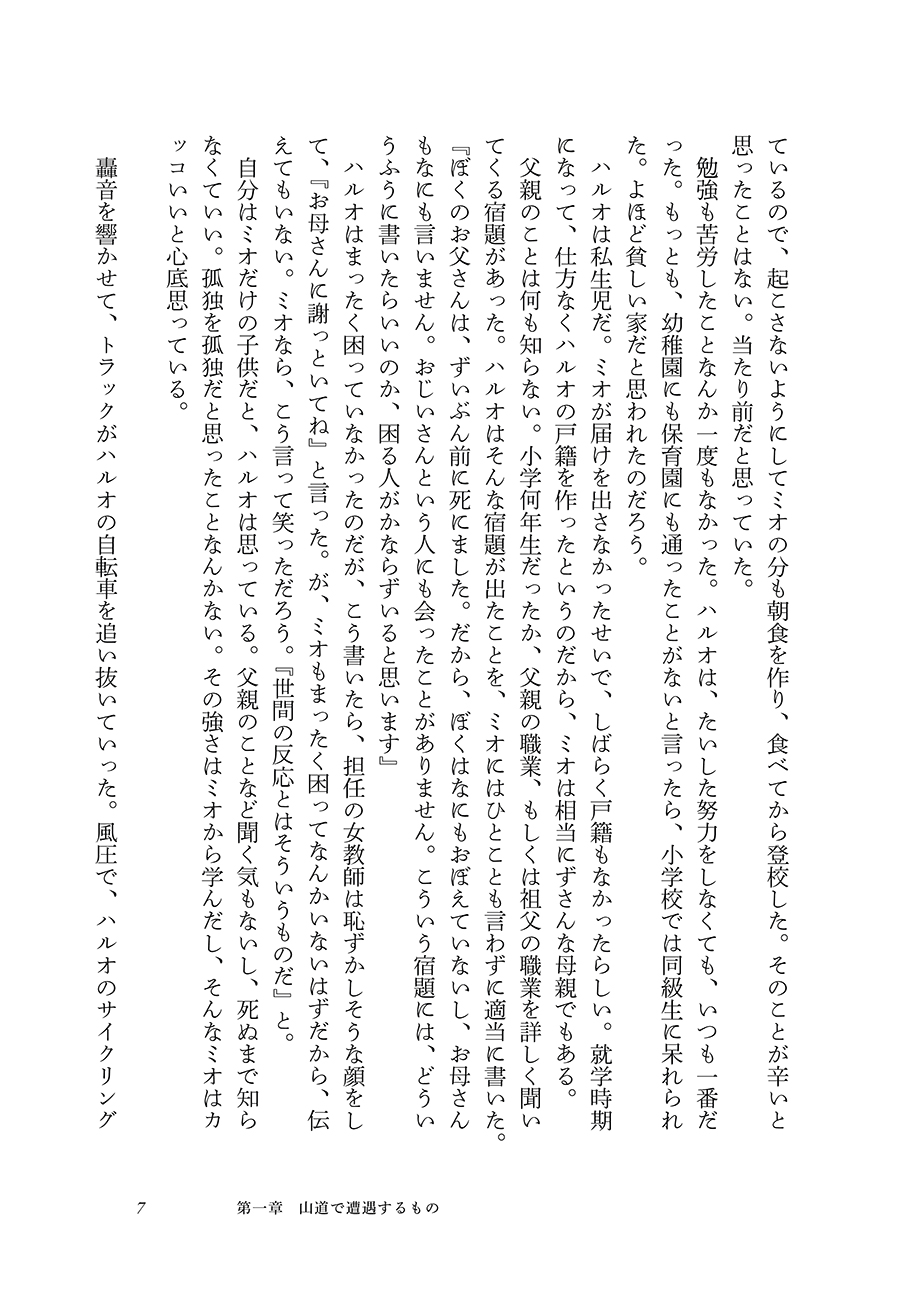 ているので、起こさないようにしてミオの分も朝食を作り、食べてから登校した。そのことが辛いと
思ったことはない。当たり前だと思っていた。
　勉強も苦労したことなんか一度もなかった。ハルオは、たいした努力をしなくても、いつも一番だ
った。もっとも、幼稚園にも保育園にも通ったことがないと言ったら、小学校では同級生に呆れられ
た。よほど貧しい家だと思われたのだろう。
　ハルオは私生児だ。ミオが届けを出さなかったせいで、しばらく戸籍もなかったらしい。就学時期
になって、仕方なくハルオの戸籍を作ったというのだから、ミオは相当にずさんな母親でもある。
　父親のことは何も知らない。小学何年生だったか、父親の職業、もしくは祖父の職業を詳しく聞い
てくる宿題があった。ハルオはそんな宿題が出たことを、ミオにはひとことも言わずに適当に書いた。
『ぼくのお父さんは、ずいぶん前に死にました。だから、ぼくはなにもおぼえていないし、お母さん
もなにも言いません。おじいさんという人にも会ったことがありません。こういう宿題には、どうい
うふうに書いたらいいのか、困る人がかならずいると思います』
　ハルオはまったく困っていなかったのだが、こう書いたら、担任の女教師は恥ずかしそうな顔をし
て、『お母さんに謝っといてね』と言った。が、ミオもまったく困ってなんかいないはずだから、伝
えてもいない。ミオなら、こう言って笑っただろう。『世間の反応とはそういうものだ』と。
　自分はミオだけの子供だと、ハルオは思っている。父親のことなど聞く気もないし、死ぬまで知ら
なくていい。孤独を孤独だと思ったことなんかない。その強さはミオから学んだし、そんなミオはカ
ッコいいと心底思っている。
　轟音を響かせて、トラックがハルオの自転車を追い抜いていった。風圧で、ハルオのサイクリング
7　第一章　山道で遭遇するもの